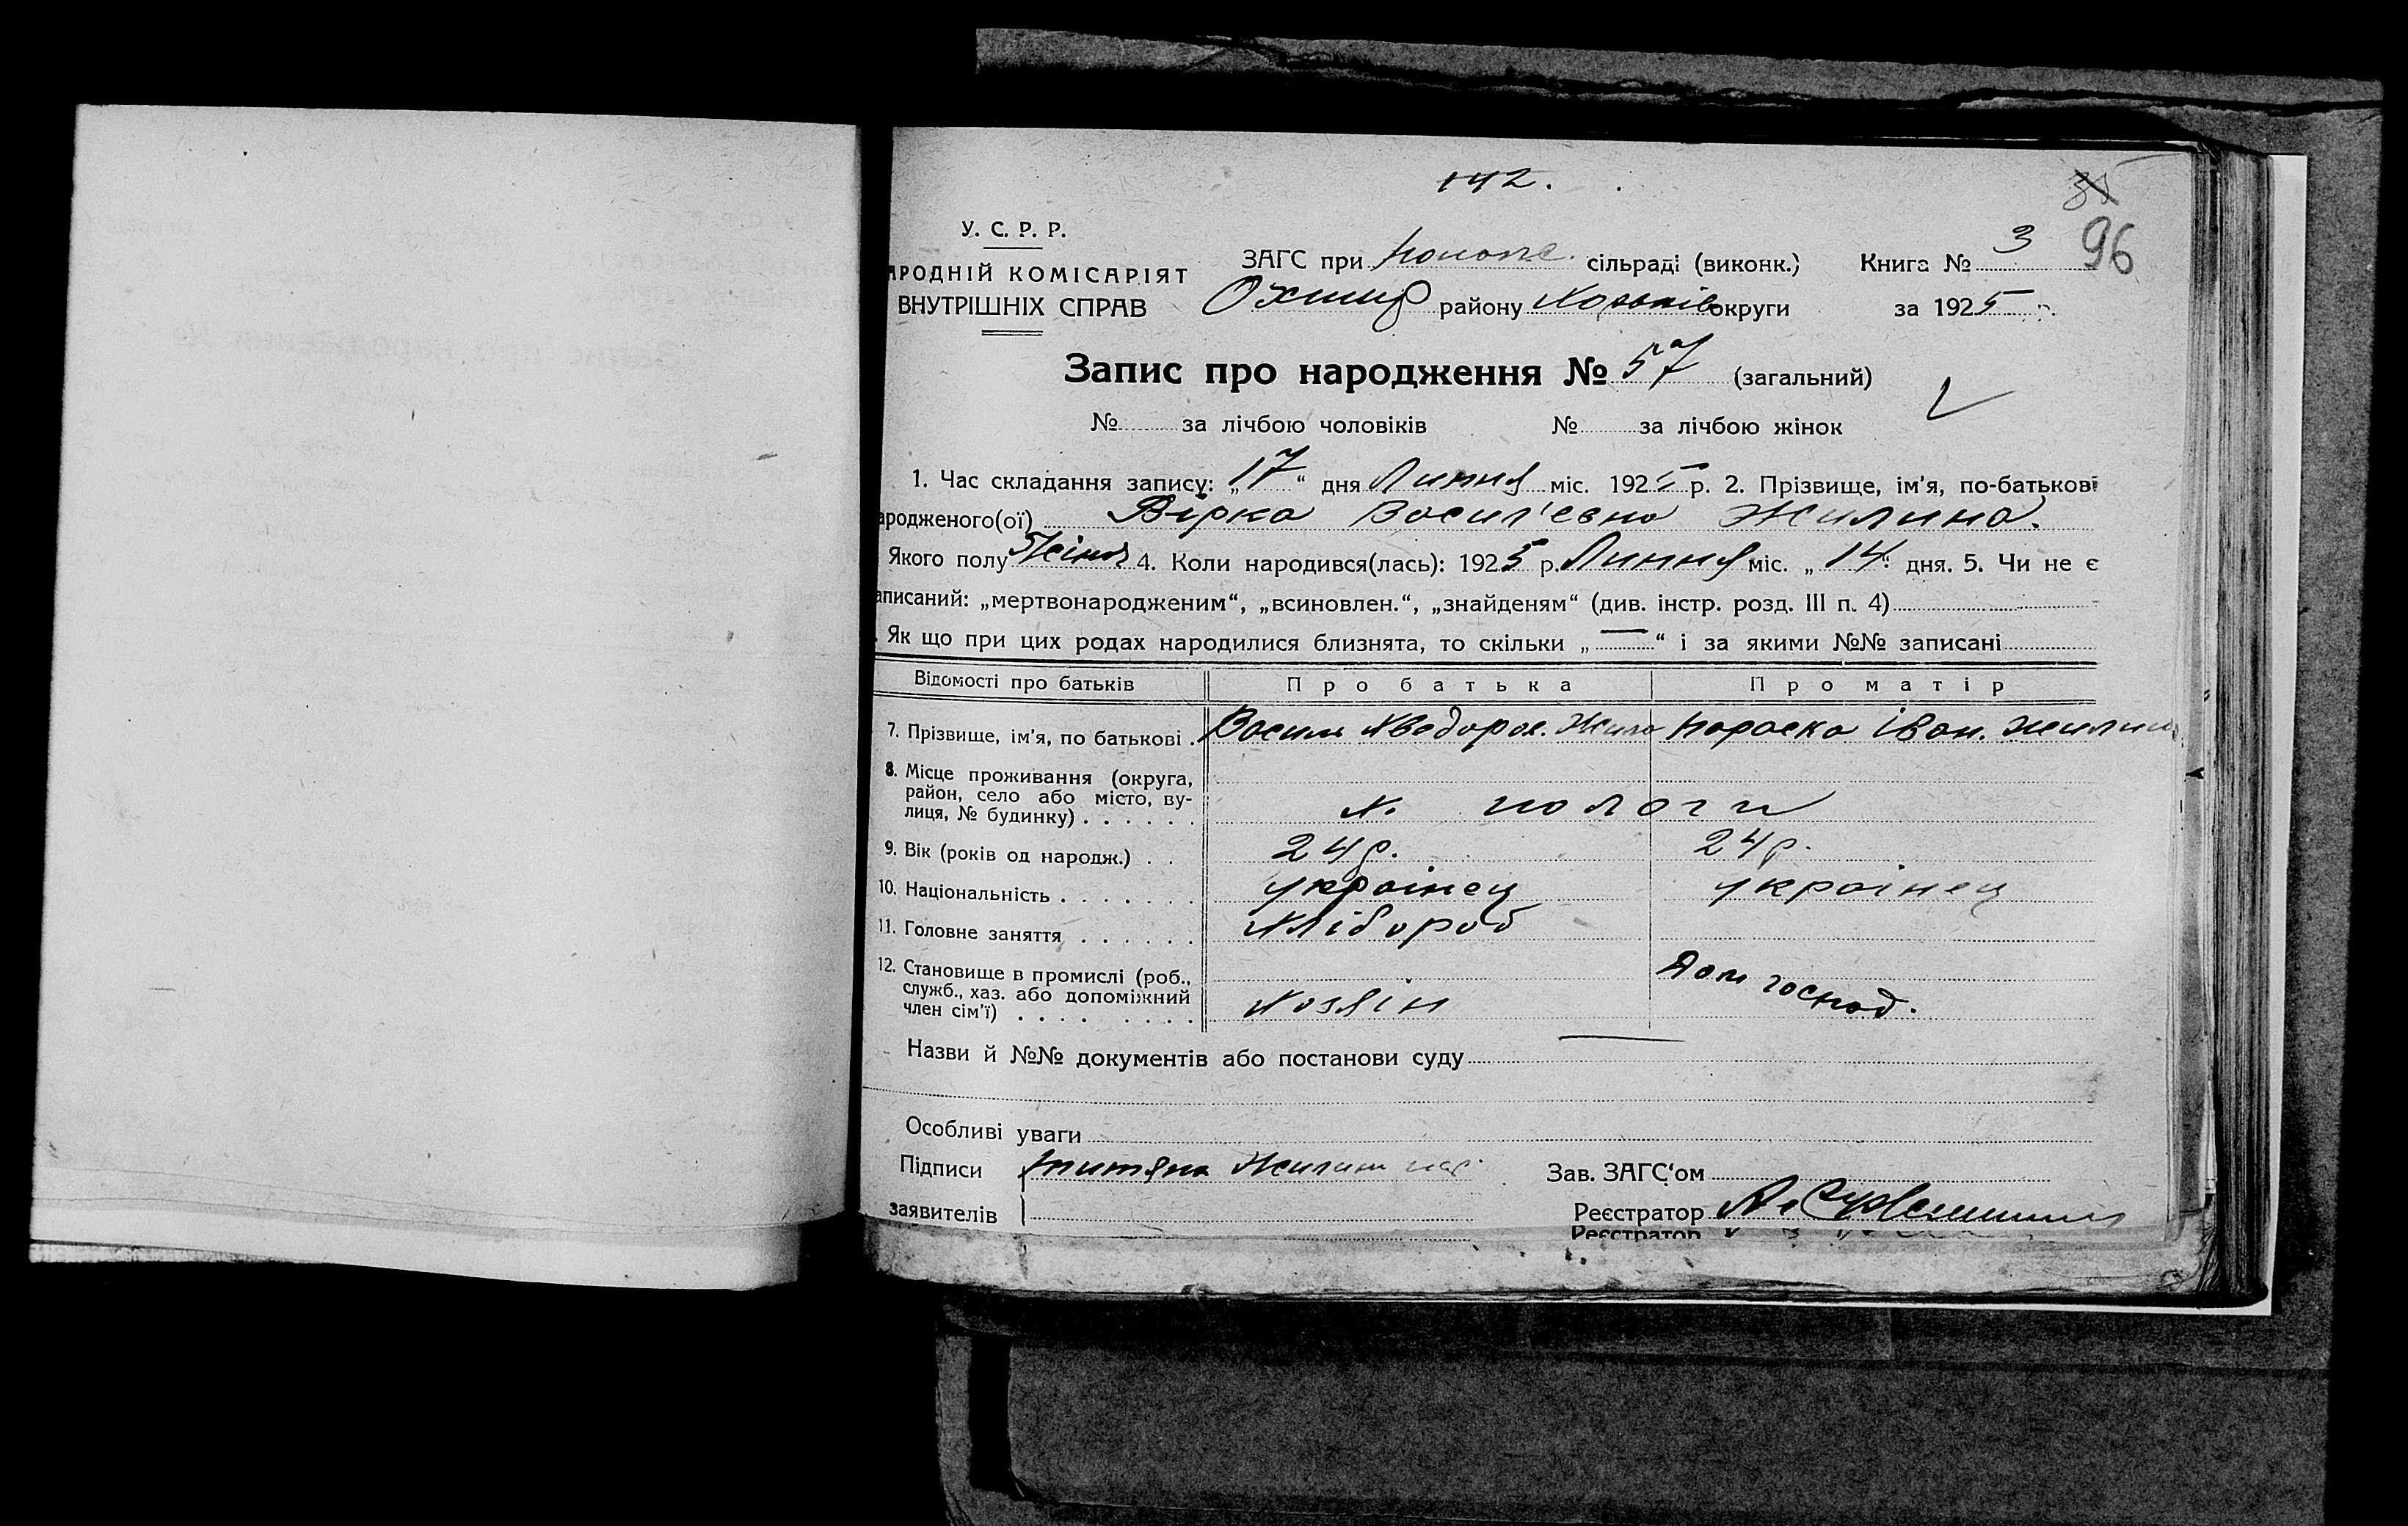 142.
35
96
У. С. Р. Р.
АРОДНІЙ КОМІСАРІЯТ
ВНУТРІШНІХ СПРАВ
ЗАГС при сільраді (виконк.) Книга № 3
району Харьків округи за 1925 р.
Запис про народження № 57 (загальний)
№ за лічбою чоловіків № за лічбою жінок
1. Час складання запису: „17“ дня Липня міс. 1925 р. 2. Прізвище, ім'я, по-батькові
ародженого(ої) Вірка Васил'евна Жилина.
Якого полу Жіноч 4. Коли народився(лась): 1925 р. Липня міс. „14“ дня. 5. Чи не є
аписаний: „мертвонародженим“, „всиновлен.“, „знайденям“ (див. інстр. розд. III п. 4)
. Як що при цих родах народилися близнята, то скільки „—“ і за якими №№ записані
Відомості про батьків Про батька Про матір
7. Прізвище, ім'я, по батькові . Василь Хведоров. Жила Параска Іван. Жилина
8. Місце проживання (округа,
район, село або місто, ву-
лиця, № будинку) . . . . . . х. пологи
9. Вік (років од народж.) . . 24 р. 24 р.
10. Національність . . . . . . . українец українец
11. Головне заняття . . . . . . Хлібороб
12. Становище в промислі (роб.,
служб., хаз. або допоміжний
член сім'ї) . . . . . . . . Хозяін Дом господ.
Назви й №№ документів або постанови суду
Особливі уваги
Підписи Жилин Зав. ЗАГС'ом
заявителів Реєстратор
Реєстратор